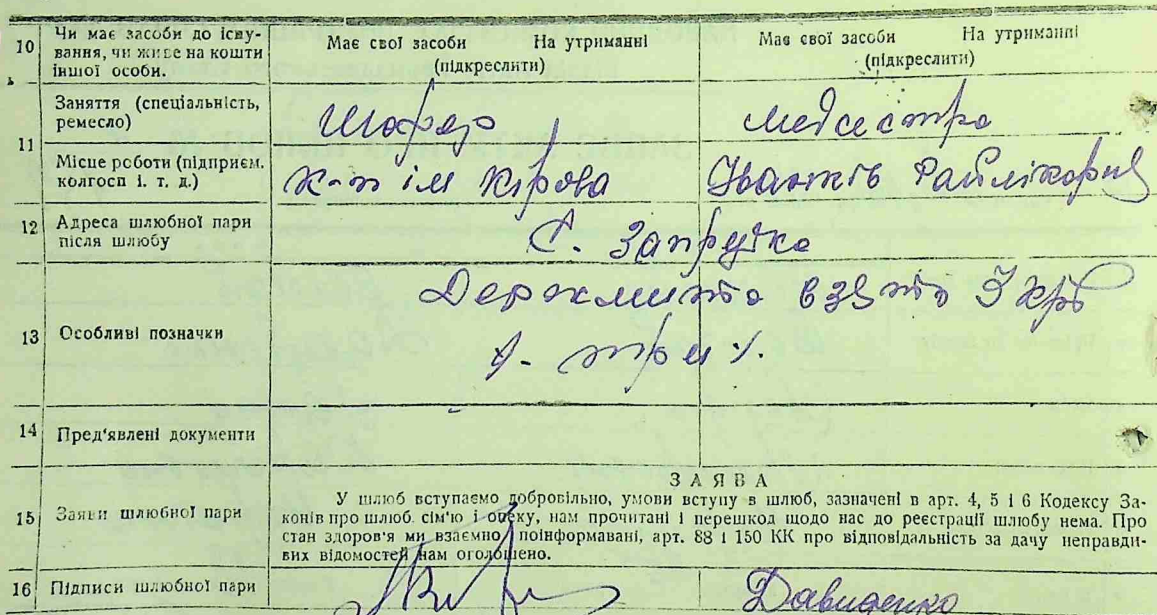 10 Чи має засоби до існу-
вання, чи живе на кошти
іншої особи.
Має свої засоби На утриманні
(підкреслити)
Має свої засоби На утриманні
(підкреслити)
11 Заняття (спеціальність,
ремесло)
Шофер
медсестра
Місце роботи (підприєм.
колгосп і. т. д.)
К-п ім Кірова
Іванків Райлікарня
12 Адреса шлюбної пари
після шлюбу
С. Запрудка
13 Особливі позначки
Держмито взято 3 крб
14 Пред'явлені документи
15 Заяви шлюбної пари
ЗАЯВА
У шлюб вступаємо добровільно, умови вступу в шлюб, зазначені в арт. 4, 5 і 6 Кодексу За-
конів про шлюб. сім'ю і опеку, нам прочитані і перешкод щодо нас до реєстрації шлюбу нема. Про
стан здоров'я ми взаємно поінформавані, арт. 88 і 150 КК про відповідальність за дачу неправди-
вих відомостей нам оголошено.
16 Підписи шлюбної пари
Давиденко